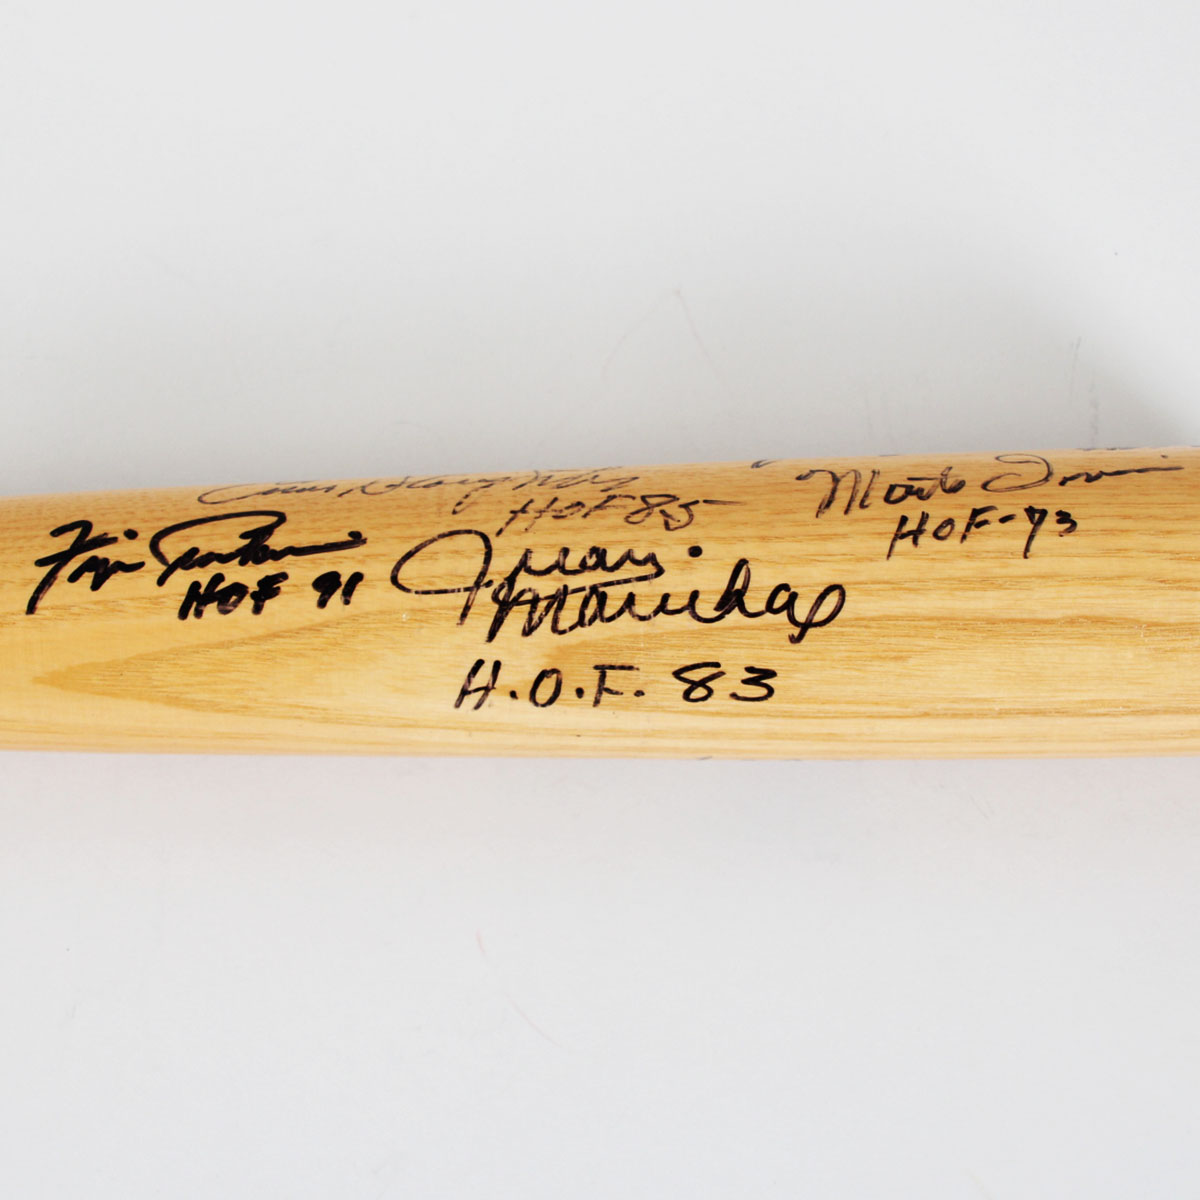 Enos Slaughter
HOF 85
Monte Irvin
HOF-73
Fergie Jenkins
HOF 91
Juan
Marichal
H.O.F. 83